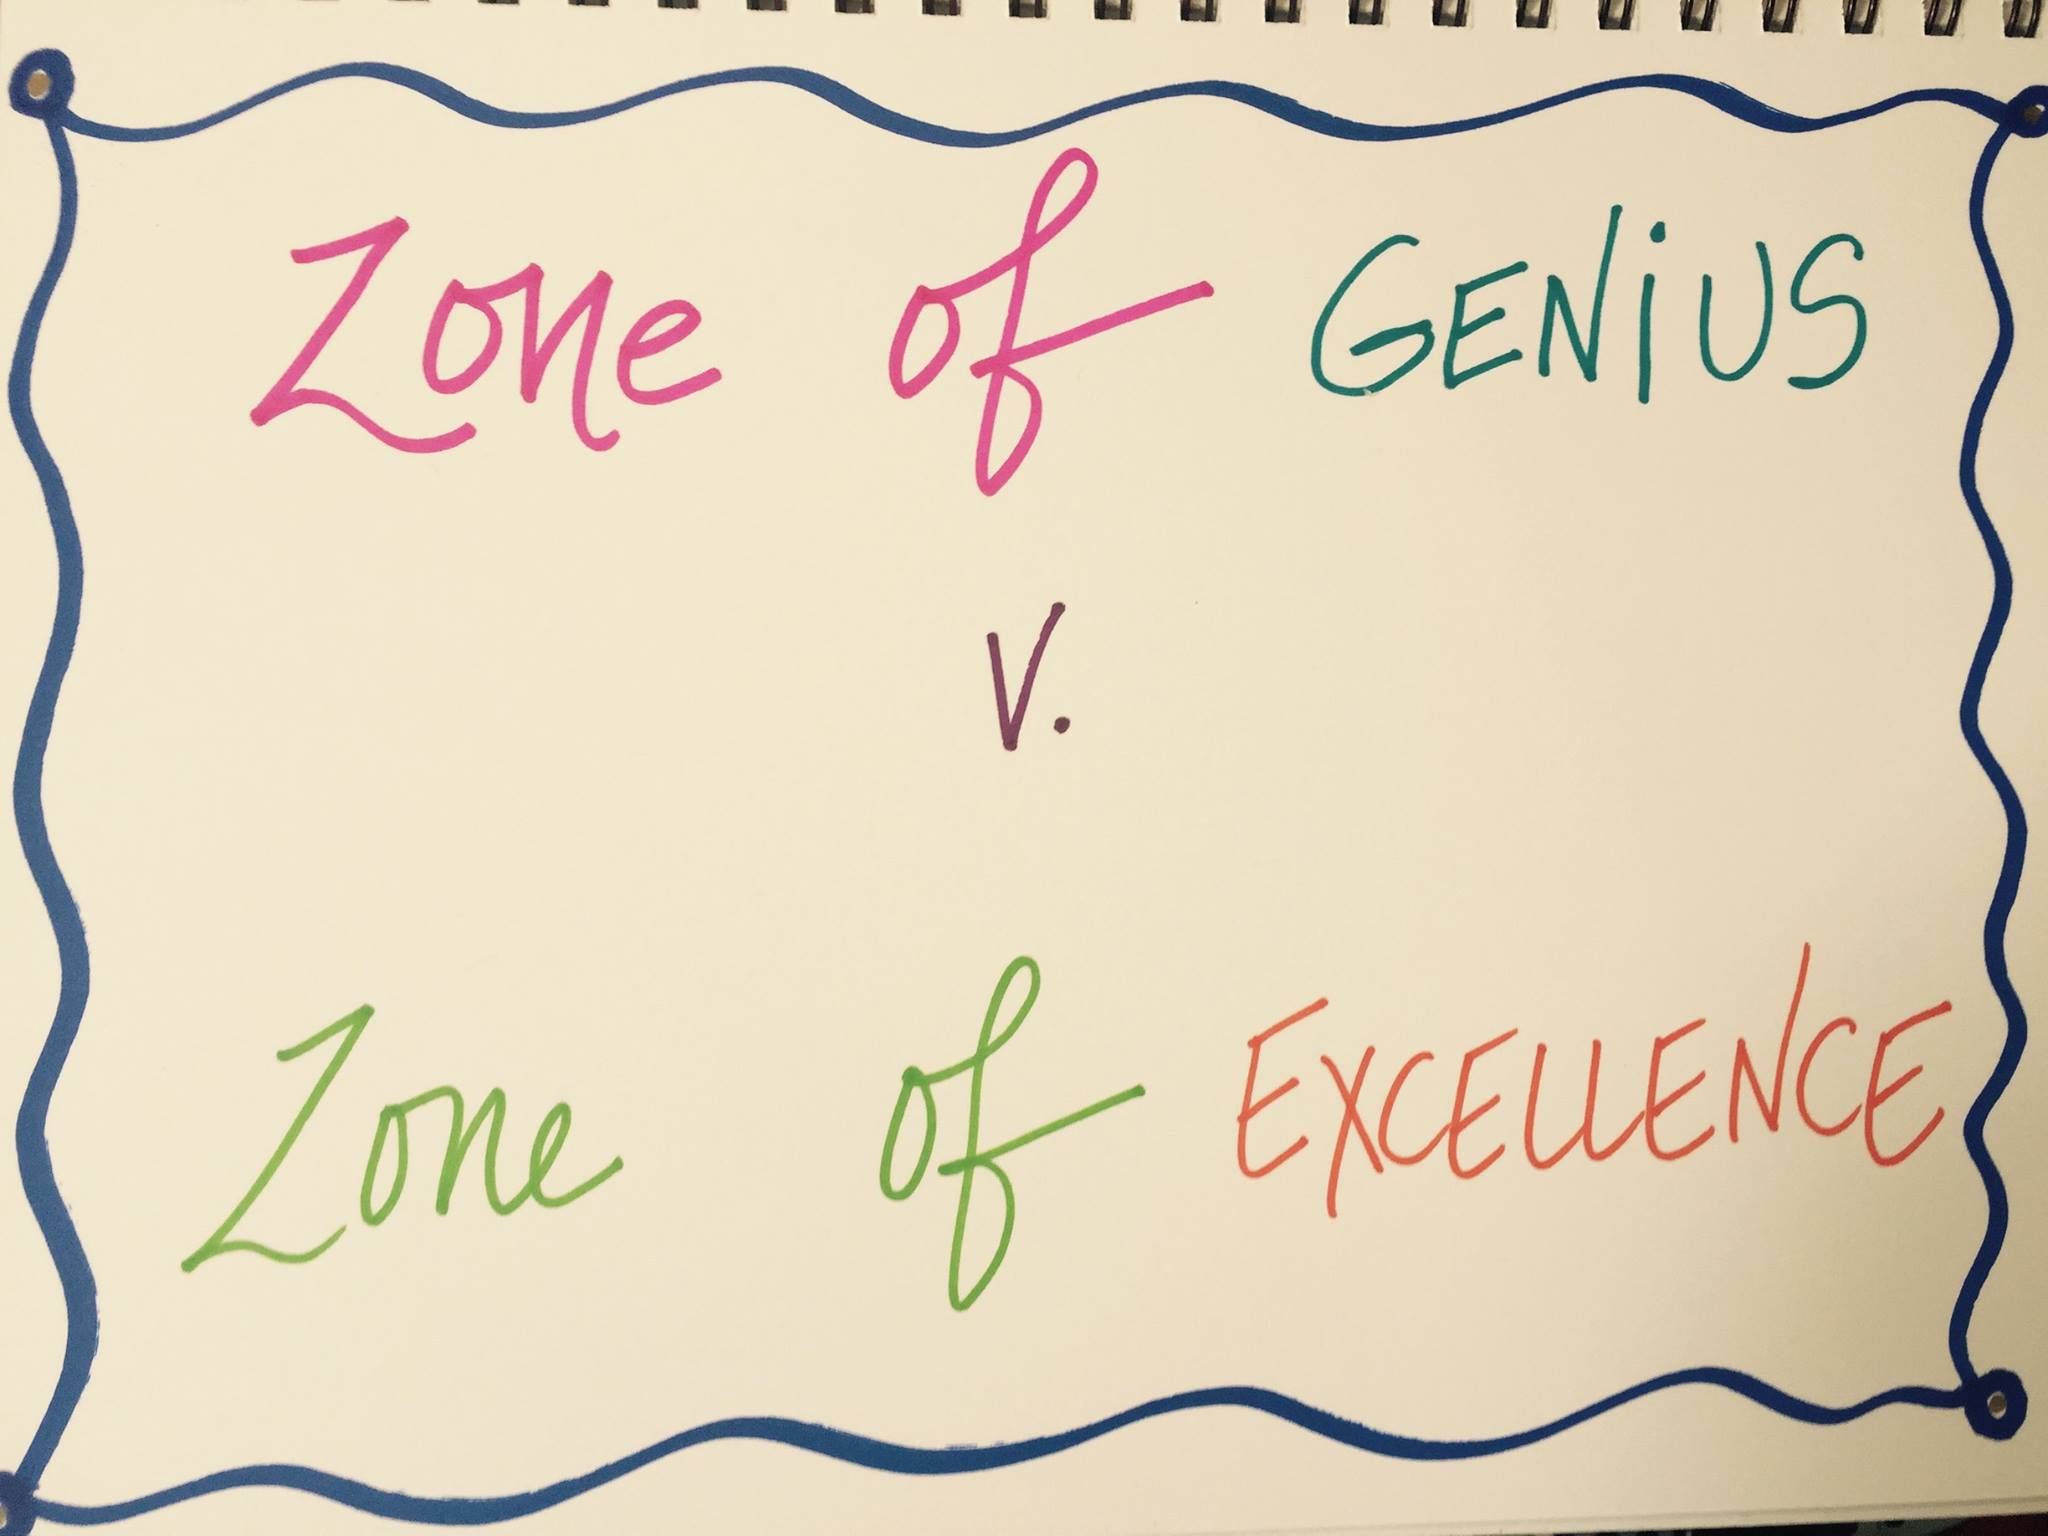 Zone of GENiUS
V.
Zone of EXCELLENCE